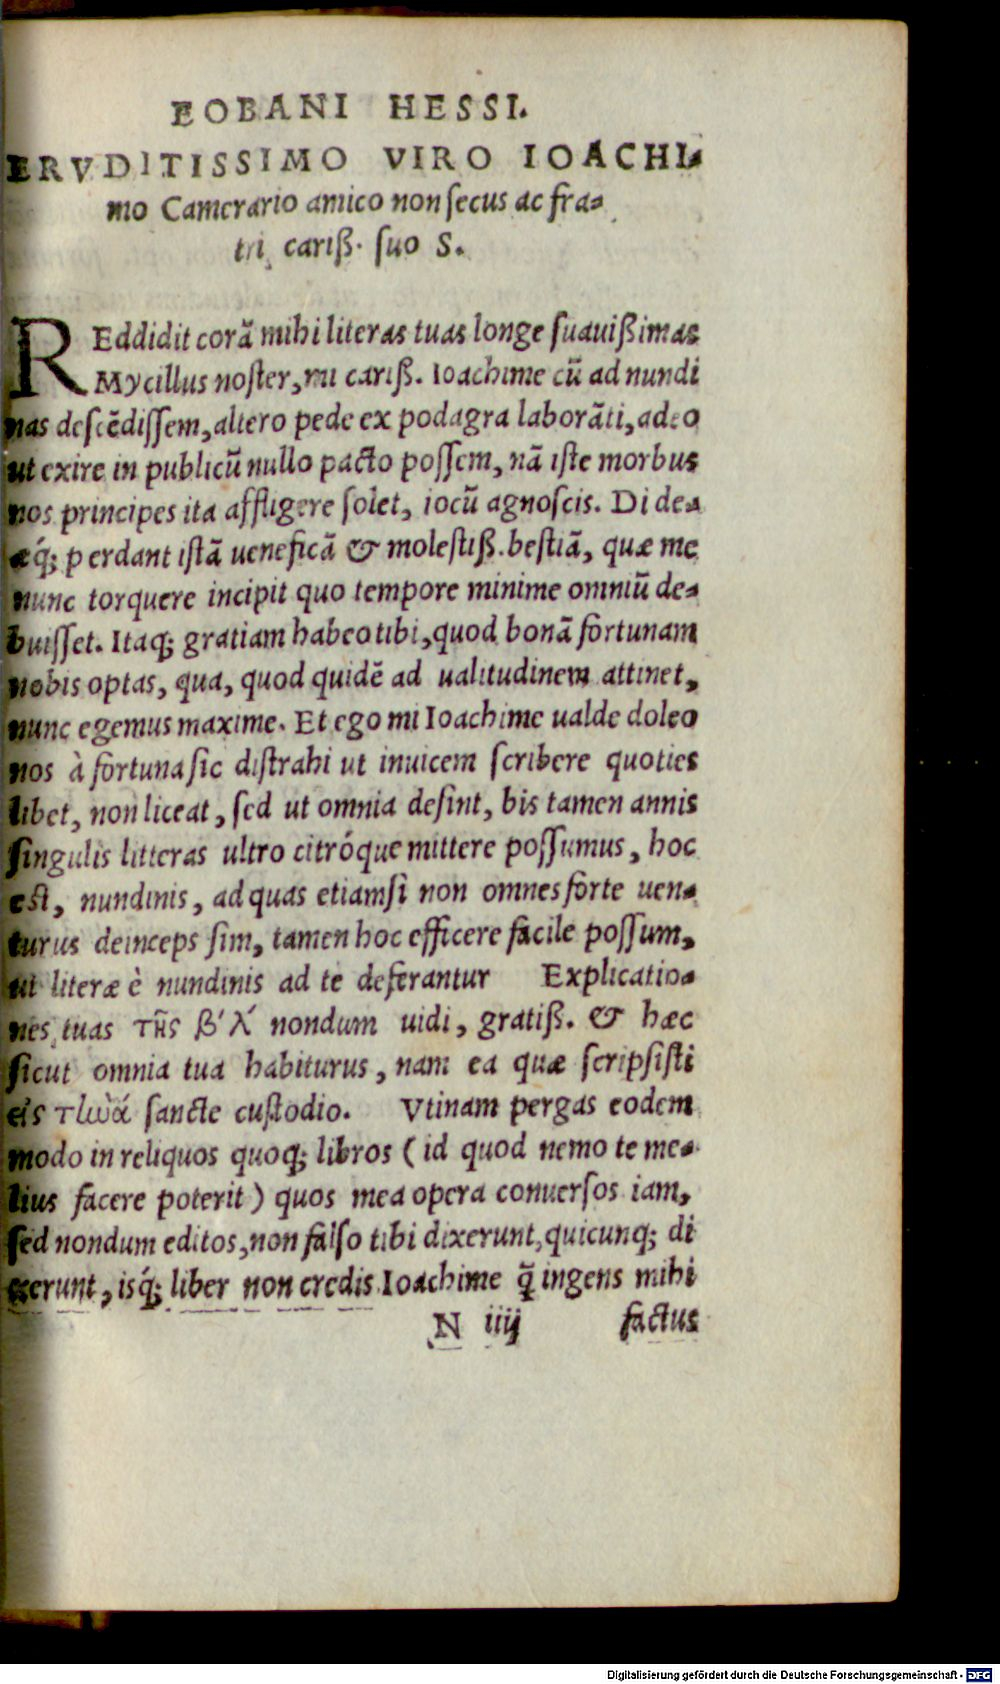 EOBANI HESSI.
ERVDITISSIMO VIRO IOACHI-
mo Camerario amico non secus ac fra-
tri cariß. suo S.
REddidit corã mihi literas tuas longe suauißimas
Mycillus noster, mi cariß. Ioachime cũ ad nundi
nas descẽdissem, altero pede ex podagra laborãti, adeo
ut exire in publicũ nullo pacto possem, nã iste morbus
nos principes ita affligere solet, iocũ agnoscis. Di de-
æq́; perdant istã ueneficã & molestiß. bestiã, quæ me
nunc torquere incipit quo tempore minime omniũ de-
buisset. Itaq; gratiam habeo tibi, quod bonã fortunam
nobis optas, qua, quod quidẽ ad ualitudinem attinet,
nunc egemus maxime. Et ego mi Ioachime ualde doleo
nos à fortuna sic distrahi ut inuicem scribere quoties
libet, non liceat, sed ut omnia desint, bis tamen annis
singulis litteras ultro citróque mittere possumus, hoc
est, nundinis, ad quas etiamsi non omnes forte uen-
turus deinceps sim, tamen hoc efficere facile possum,
ut literæ è nundinis ad te deferantur Explicatio-
nes tuas τῆς β' λ' nondum uidi, gratiß. & hæc
sicut omnia tua habiturus, nam ea quæ scripsisti
εἰς τὴν ά sancte custodio. Vtinam pergas eodem
modo in reliquos quoq; libros (id quod nemo te me-
lius facere poterit) quos mea opera conuersos iam,
sed nondum editos, non falso tibi dixerunt, quicunq; di
xerunt, isq́; liber non credis Ioachime q̃ ingens mihi
N iiij factus
Digitalisierung gefördert durch die Deutsche Forschungsgemeinschaft - DFG